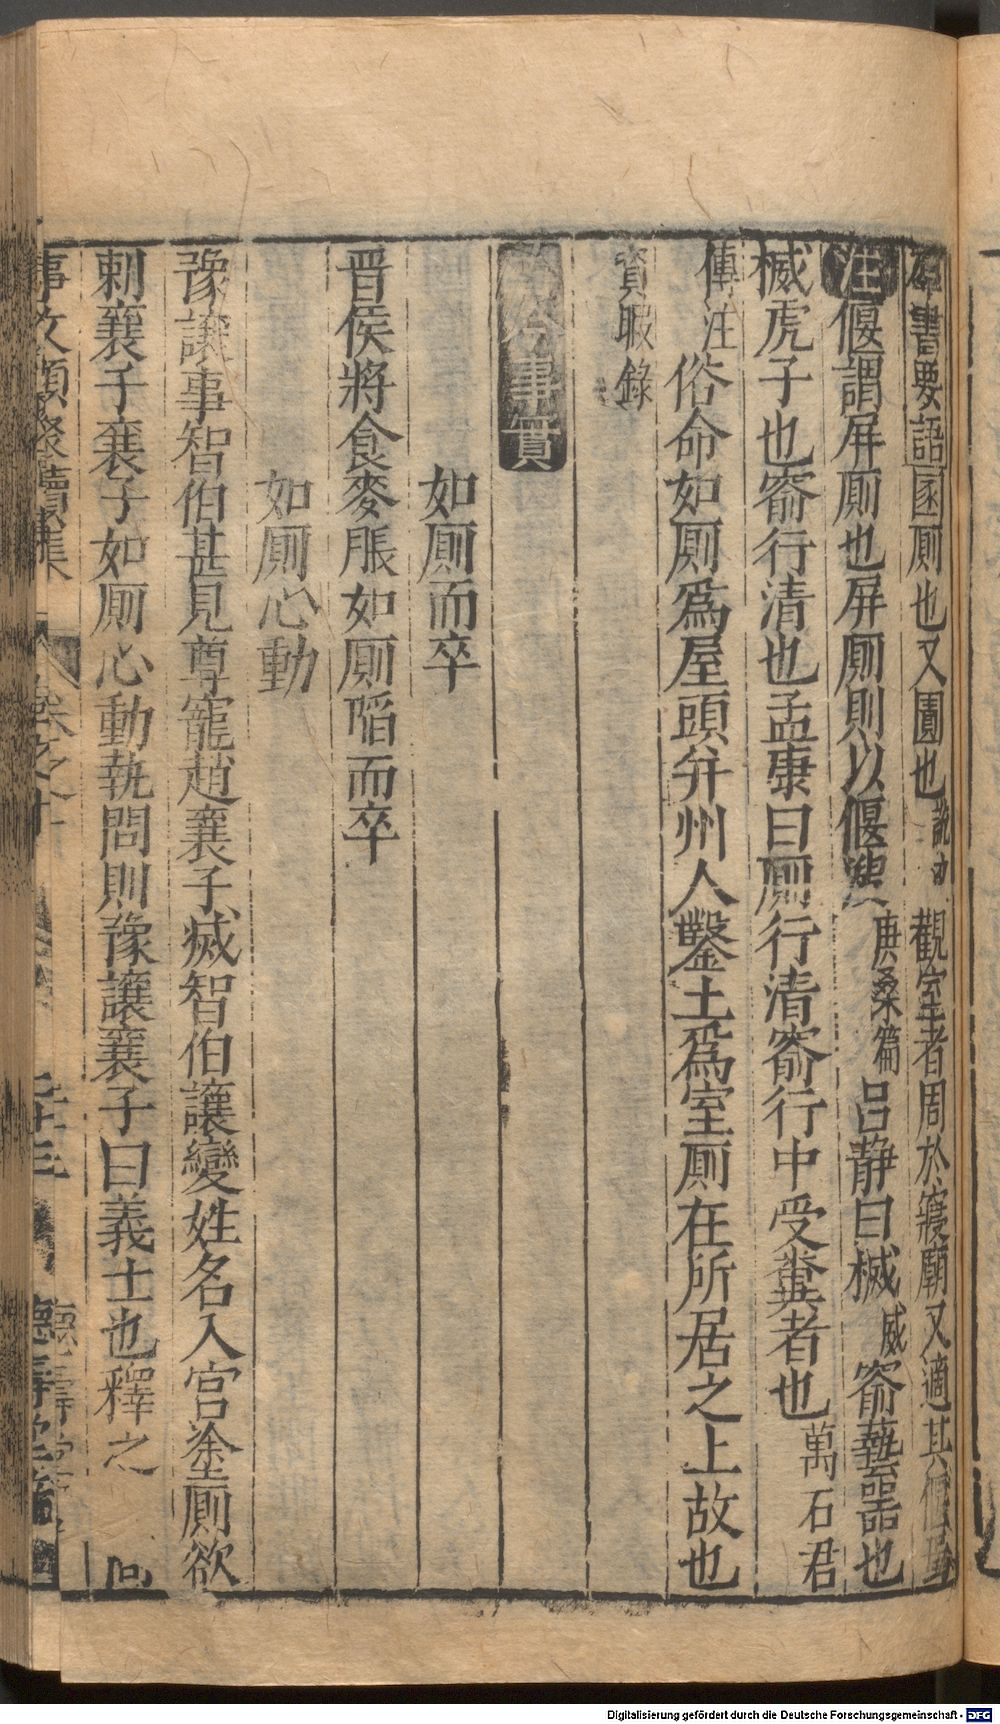 羣書要語圂厠也又圊也說文觀室者周於寢廟又適其偃焉
注偃謂屏厠也屏厠則以偃溲庚桑篇呂静曰楲威窬藝器也
楲虎子也窬行清也孟康曰厠行清窬行中受糞者也萬石君
傳注俗命如厠爲屋頭并州人鑿土爲室厠在所居之上故也
資暇錄
古今事實
如厠而卒
晋侯將食麥脹如厠陷而卒
如厠心動
豫讓事智伯甚見尊寵趙襄子滅智伯讓變姓名入宮塗厠欲
刺襄子襄子如厠心動執問則豫讓襄子曰義士也釋之
事文類聚續集 卷之十
Digitalisierung gefördert durch die Deutsche Forschungsgemeinschaft - DFG